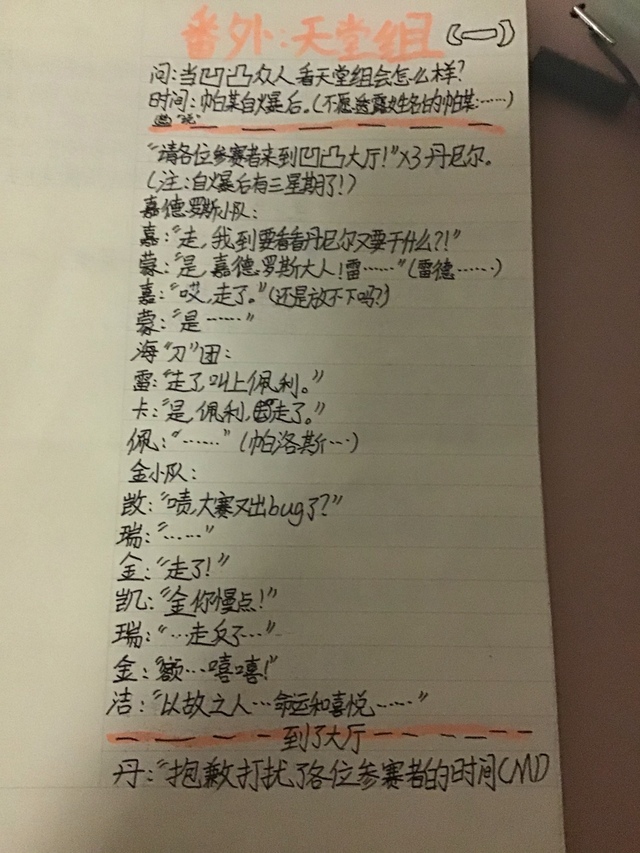 番外:天堂组(一)
问:当凹凸众人看天堂组会怎么样?
时间:帕某自爆后。(不愿透露姓名的帕某……)
"请各位参赛者来到凹凸大厅!"X3丹尼尔。
(注:自爆后有三星期了!)
嘉德罗斯小队:
嘉:"走,我到要看看丹尼尔又要干什么?!"
蒙:"是,嘉德罗斯大人!雷……"(雷德……)
嘉:"哎,走了。"(还是放不下吗?)
蒙:"是……"
海"刀"团:
雷:"走了,叫上佩利。"
卡:"是,佩利,走了。"
佩:"……"(帕洛斯…)
金小队:
凯:"啧,大赛又出bug了?"
瑞:"……"
金:"走了!"
凯:"金你慢点!"
瑞:"…走反了…"
金:"额…嘻嘻!"
洁:"以故之人…命运和喜悦……"
到了大厅
丹:"抱歉打扰了各位参赛者的时间(M)